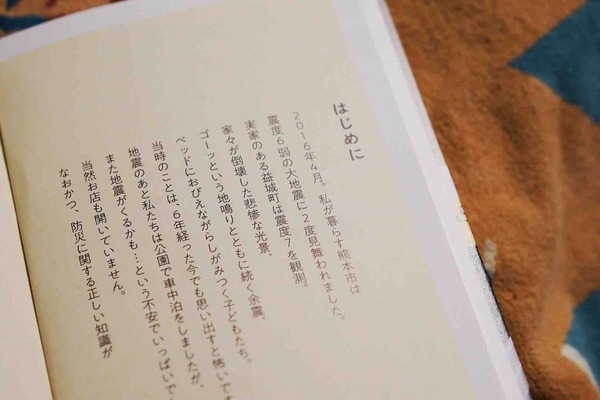 はじめに
2016年4月。私が暮らす熊本市は
震度6弱の大地震に2度見舞われました。
実家のある益城町は震度7を観測。
家々が倒壊した悲惨な光景、
ゴーッという地鳴りとともに続く余震、
ベッドにおびえながらしがみつく子どもたち。
当時のことは、6年経った今でも思い出すと怖いです
地震のあと私たちは公園で車中泊をしましたが、
また地震がくるかも…という不安でいっぱいで
当然お店も開いていません。
なおかつ、防災に関する正しい知識が